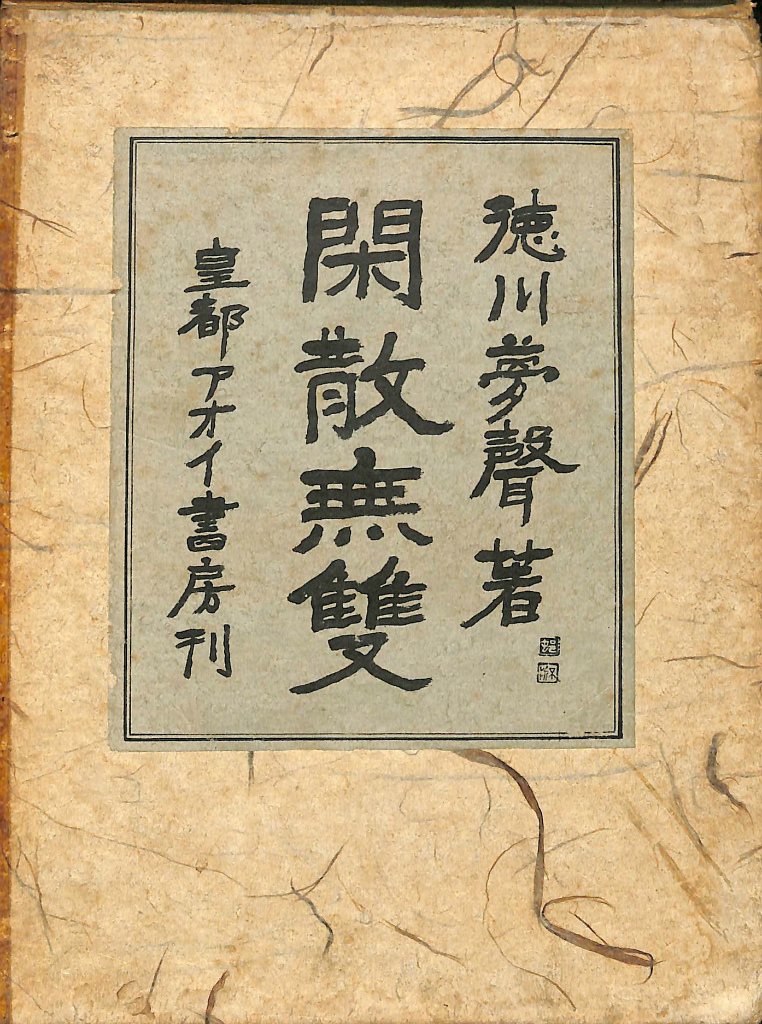 徳川夢聲著
閑散無雙
皇都アオイ書房刊